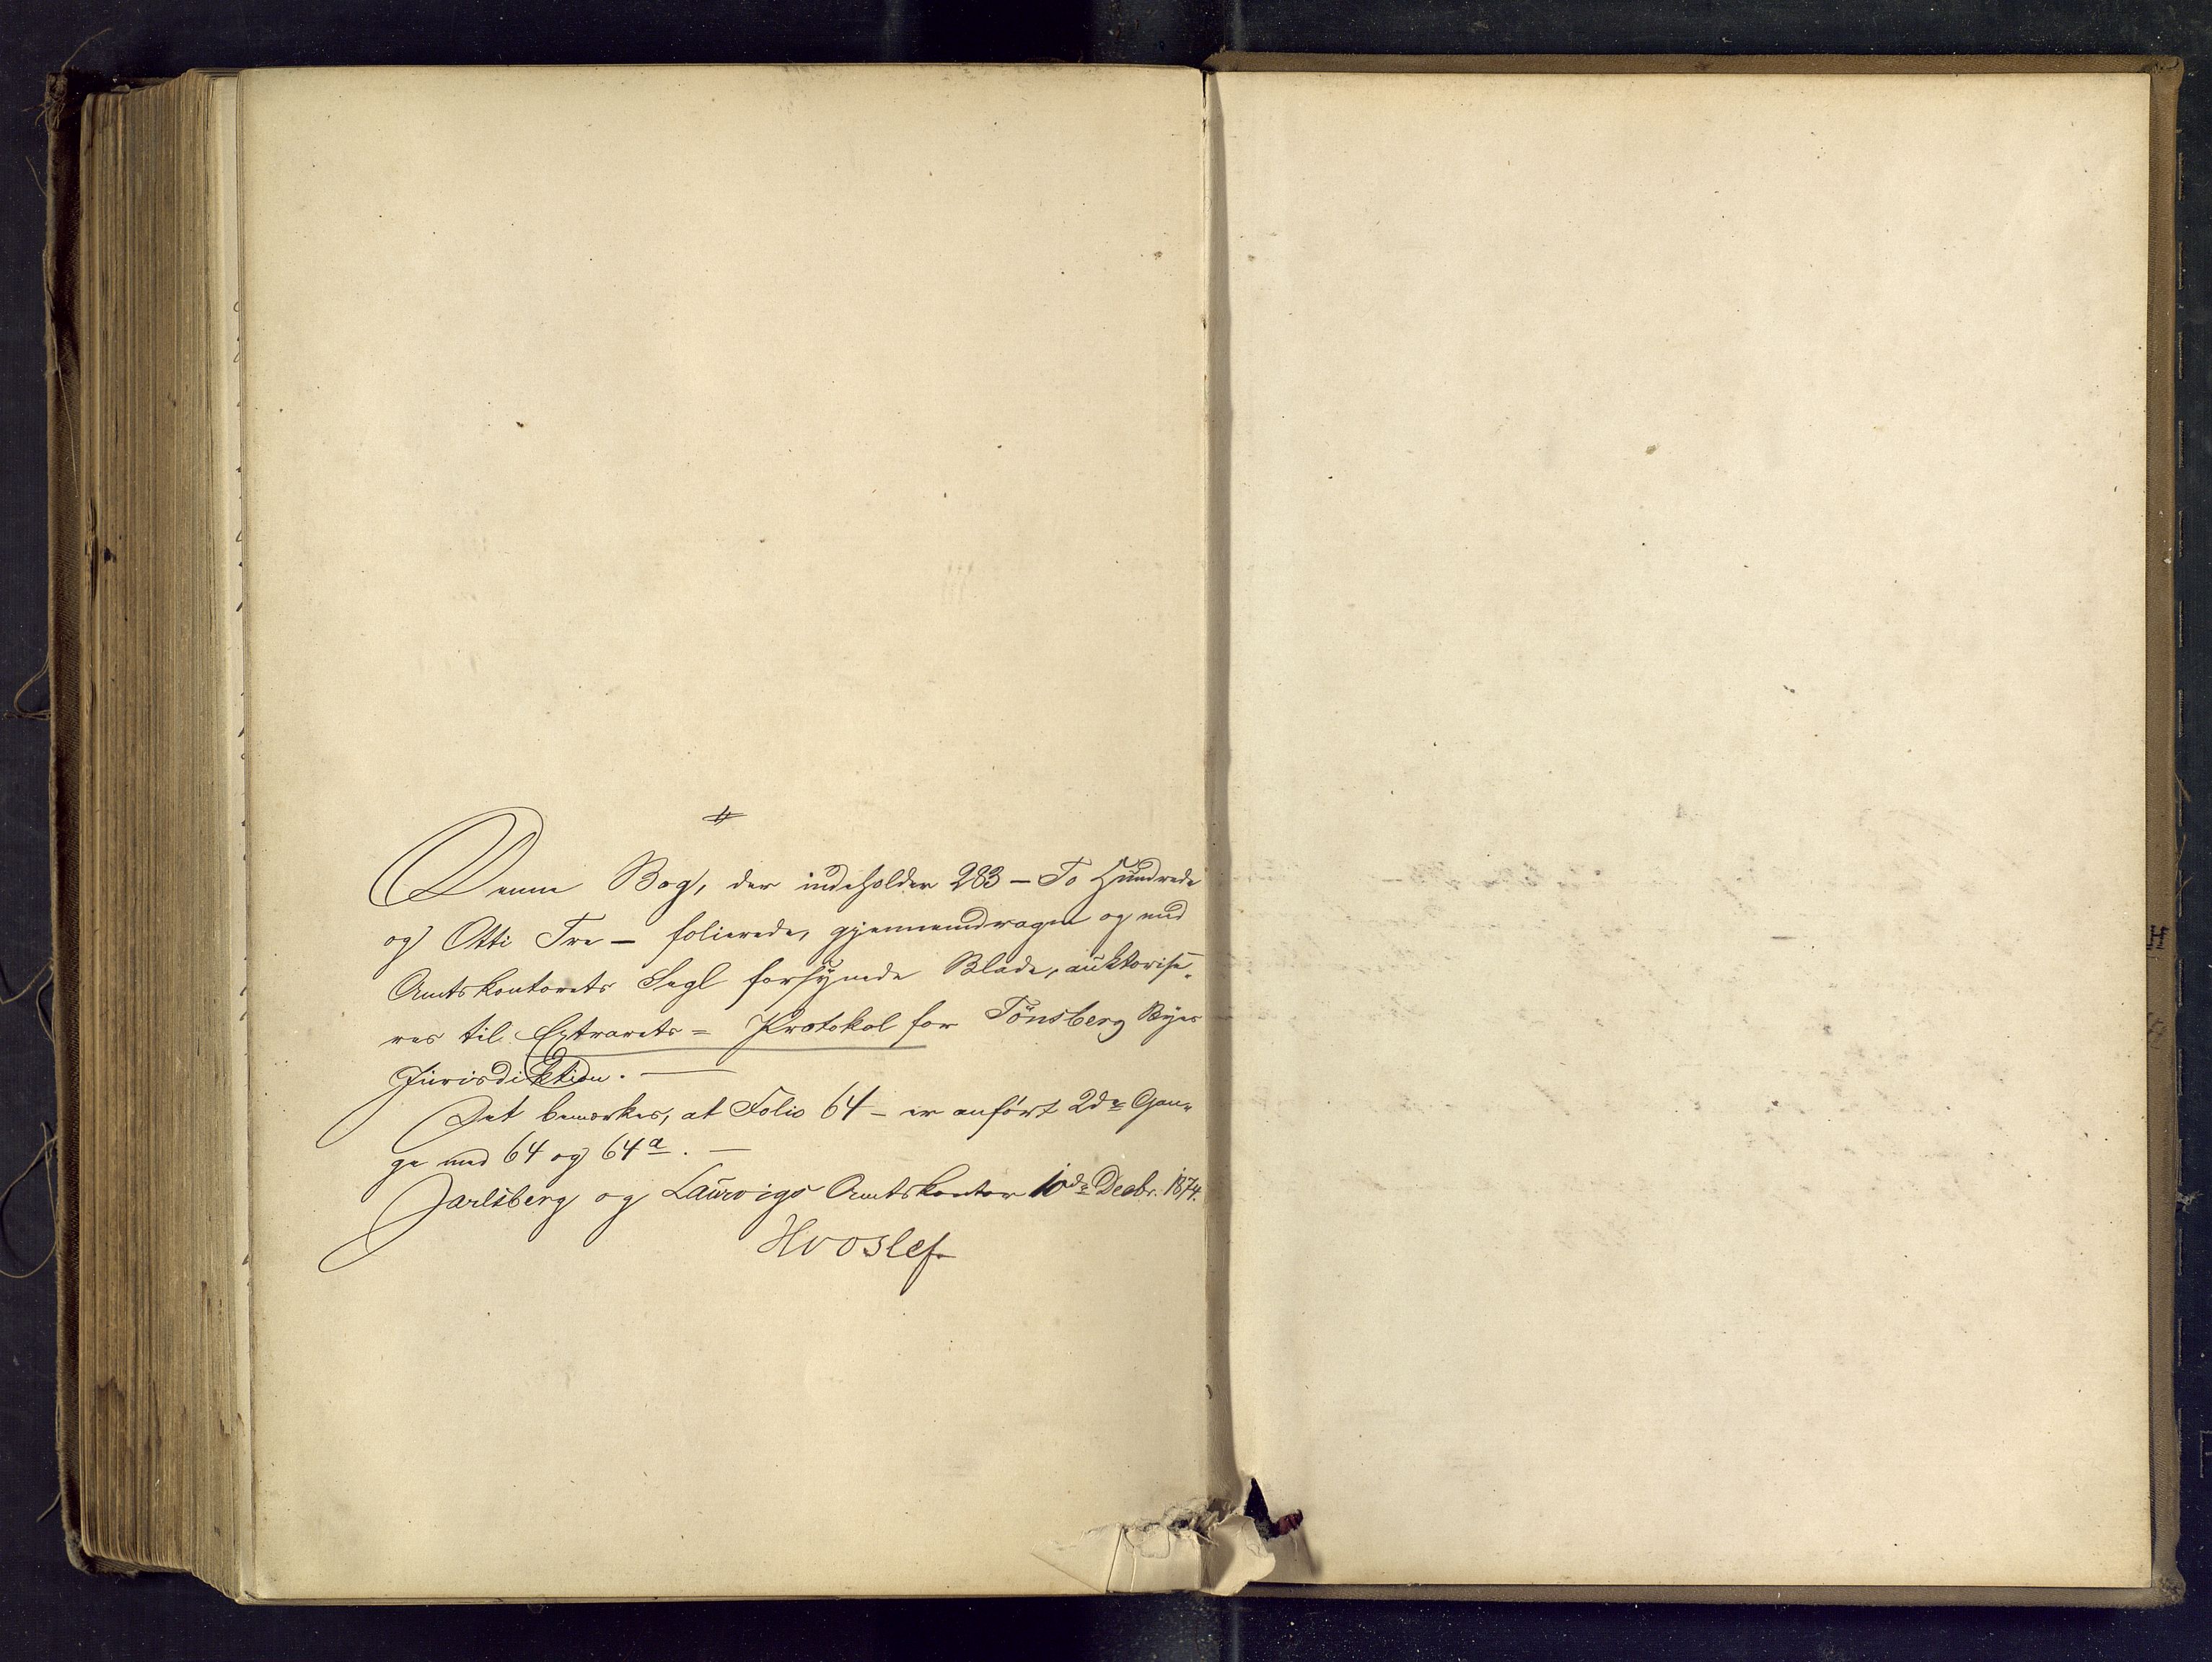 #
Denne Bog, der indeholder 283 – To Hundrede
og Otti Tre – folierede, gjennemdragne og med
Amtskontorets Segl forsÿnede Blade, auktorise„
res til Extrarets= Protokol for Tönsberg Byes
Jurisdiktion. —
Det bemærkes, at Folio 64 – er anfört 2de Gan„
ge med 64 og 64a. —
Jarlsberg og Laurvigs Amtskontor 10de Decbr. 1874.
Hvoslef